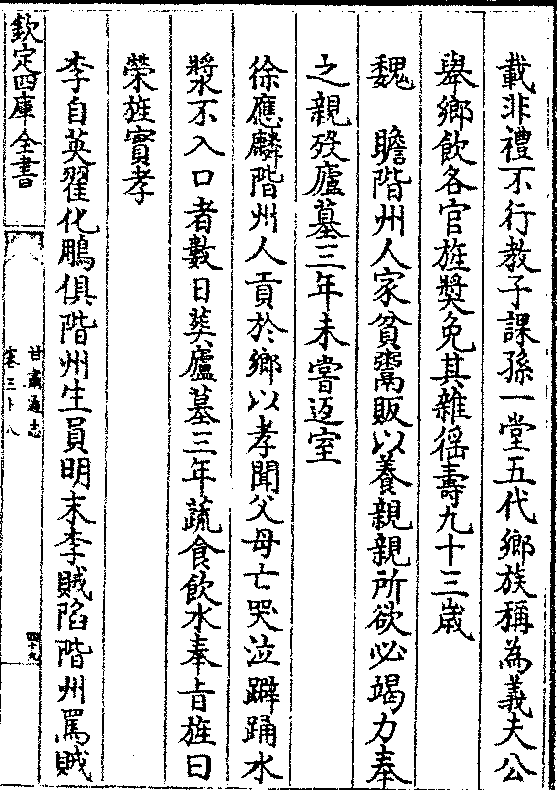 載非禮不行教子課孫一堂五代鄉族稱為義夫公
舉鄉飲各官旌奬免其雜徭壽九十三歲
魏　瞻階州人家貧鬻販以養親親所欲必竭力奉
之親歿廬墓三年未嘗返室
徐應麟階州人貢於鄉以孝聞父母亡哭泣躃踊水
漿不入口者數日葬廬墓三年蔬食飲水奉㫖旌曰
榮旌實孝
李自英翟化鵬俱階州生員明末李賊陷階州罵賊
欽定四庫全書
甘肅通志
卷三十八
四十九